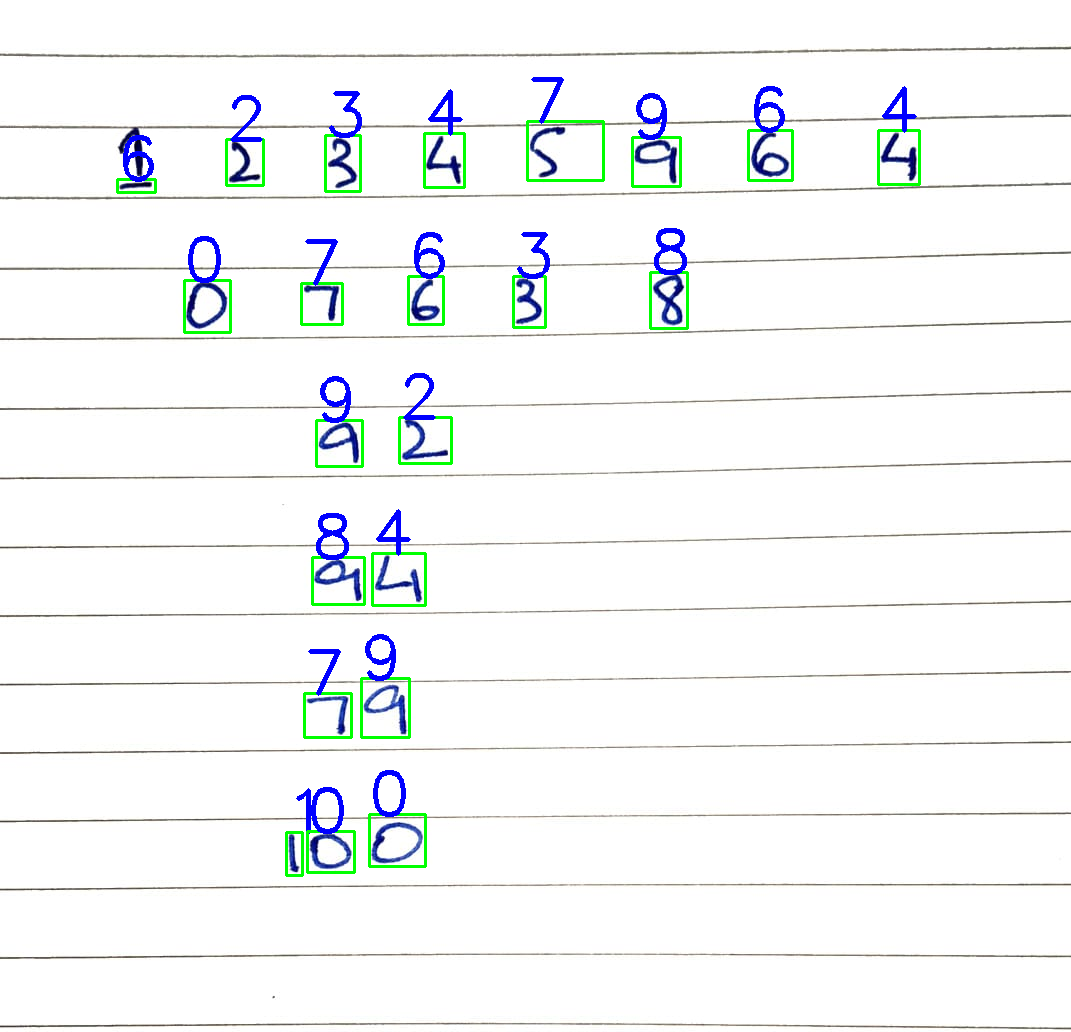 6 2 3 4 7 9 6 4
1 2 3 4 5 9 6 4
0 7 6 3 8
0 7 6 3 8
9 2
9 2
8 4
9 4
7 9
7 9
1 0 0
1 0 0